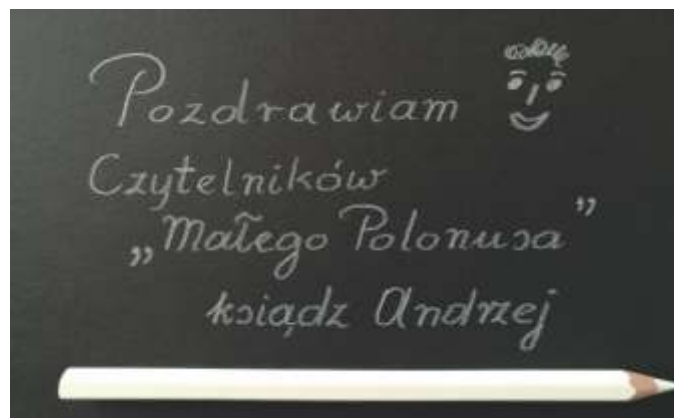 Pozdrawiam
Czytelników
„Małego Polonusa”
ksiądz Andrzej